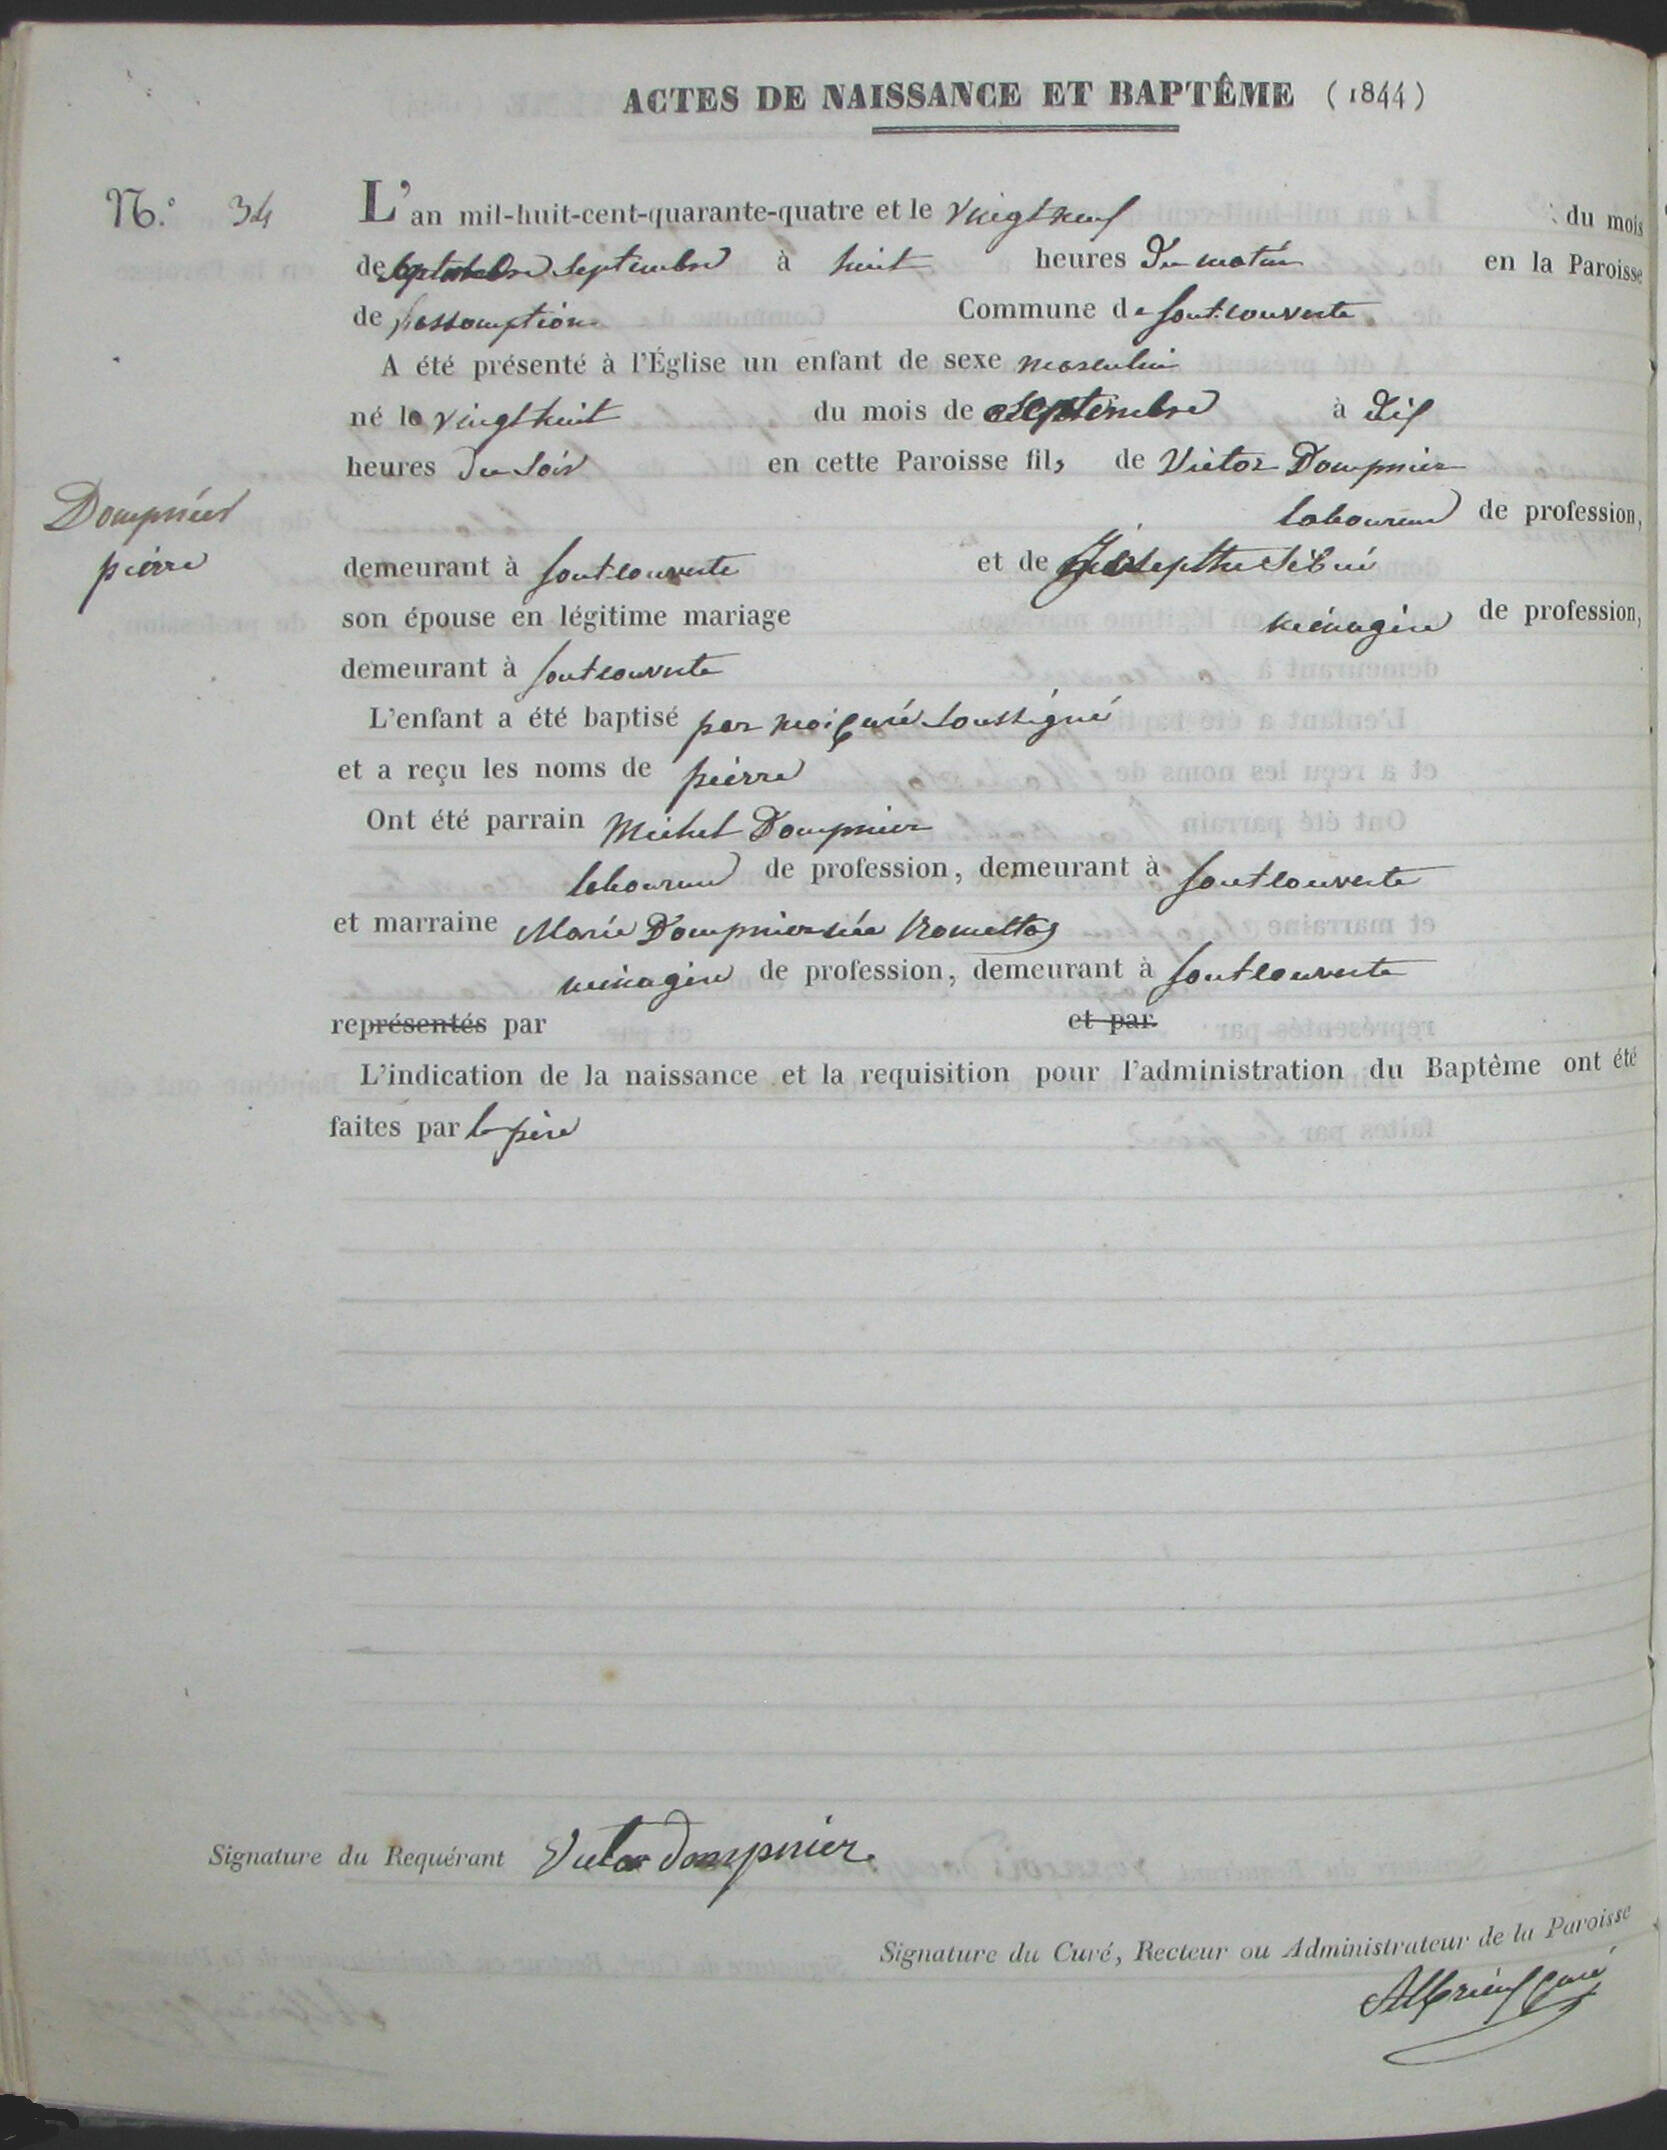 ACTES DE NAISSANCE ET BAPTÊME (1844)
N.o 34
L'an mil-huit-cent-quarante-quatre et le vingt neuf du mois
de septembre septembre à huit heures du matin en la Paroisse
de l'assomption Commune de fontcouverte
A été présenté à l'Église un enfant de sexe masculin
né le vingt huit du mois de septembre à dix
heures du soir en cette Paroisse fils de Victor Dompnier
laboureur de profession,
Dompnier
pierre
demeurant à fontcouverte et de Josephte
son épouse en légitime mariage ménagère de profession,
demeurant à fontcouverte
L'enfant a été baptisé par moi curé soussigné
et a reçu les noms de pierre
Ont été parrain Michel Dompnier
laboureur de profession, demeurant à fontcouverte
et marraine Marie Dompnier née
ménagère de profession, demeurant à fontcouverte
représentés par et par
L'indication de la naissance et la requisition pour l'administration du Baptême ont été
faites par le père
Signature du Requérant Victor dompnier
Signature du Curé, Recteur ou Administrateur de la Paroisse
curé